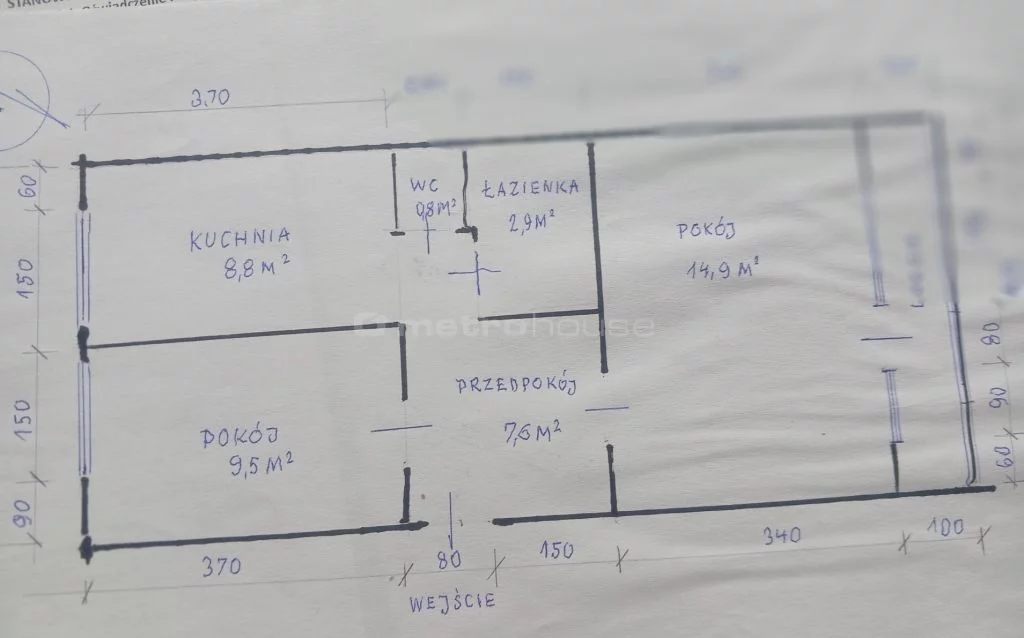 3,70
60
150
150
90
KUCHNIA
8,8 M²
WC
0,8 M²
ŁAZIENKA
2,9 M²
POKÓJ
14,9 M²
metrohouse
PRZEDPOKÓJ
7,6 M²
POKÓJ
9,5 M²
80
90
60
370
80
150
340
100
WEJŚCIE